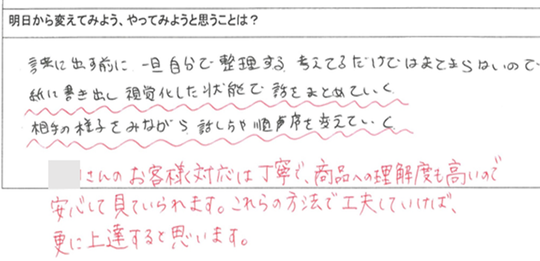 明日から変えてみよう、やってみようと思うことは?
話に出す前に 一旦自分で整理する 考えてるだけではまとまらないので
紙に書き出し 視覚化した状態で話をまとめていく
相手の様子をみながら 話し方や順序を変えていく
さんのお客様対応は丁寧で、商品への理解度も高いので
安心して見ていられます。これらの方法で工夫していけば、
更に上達すると思います。